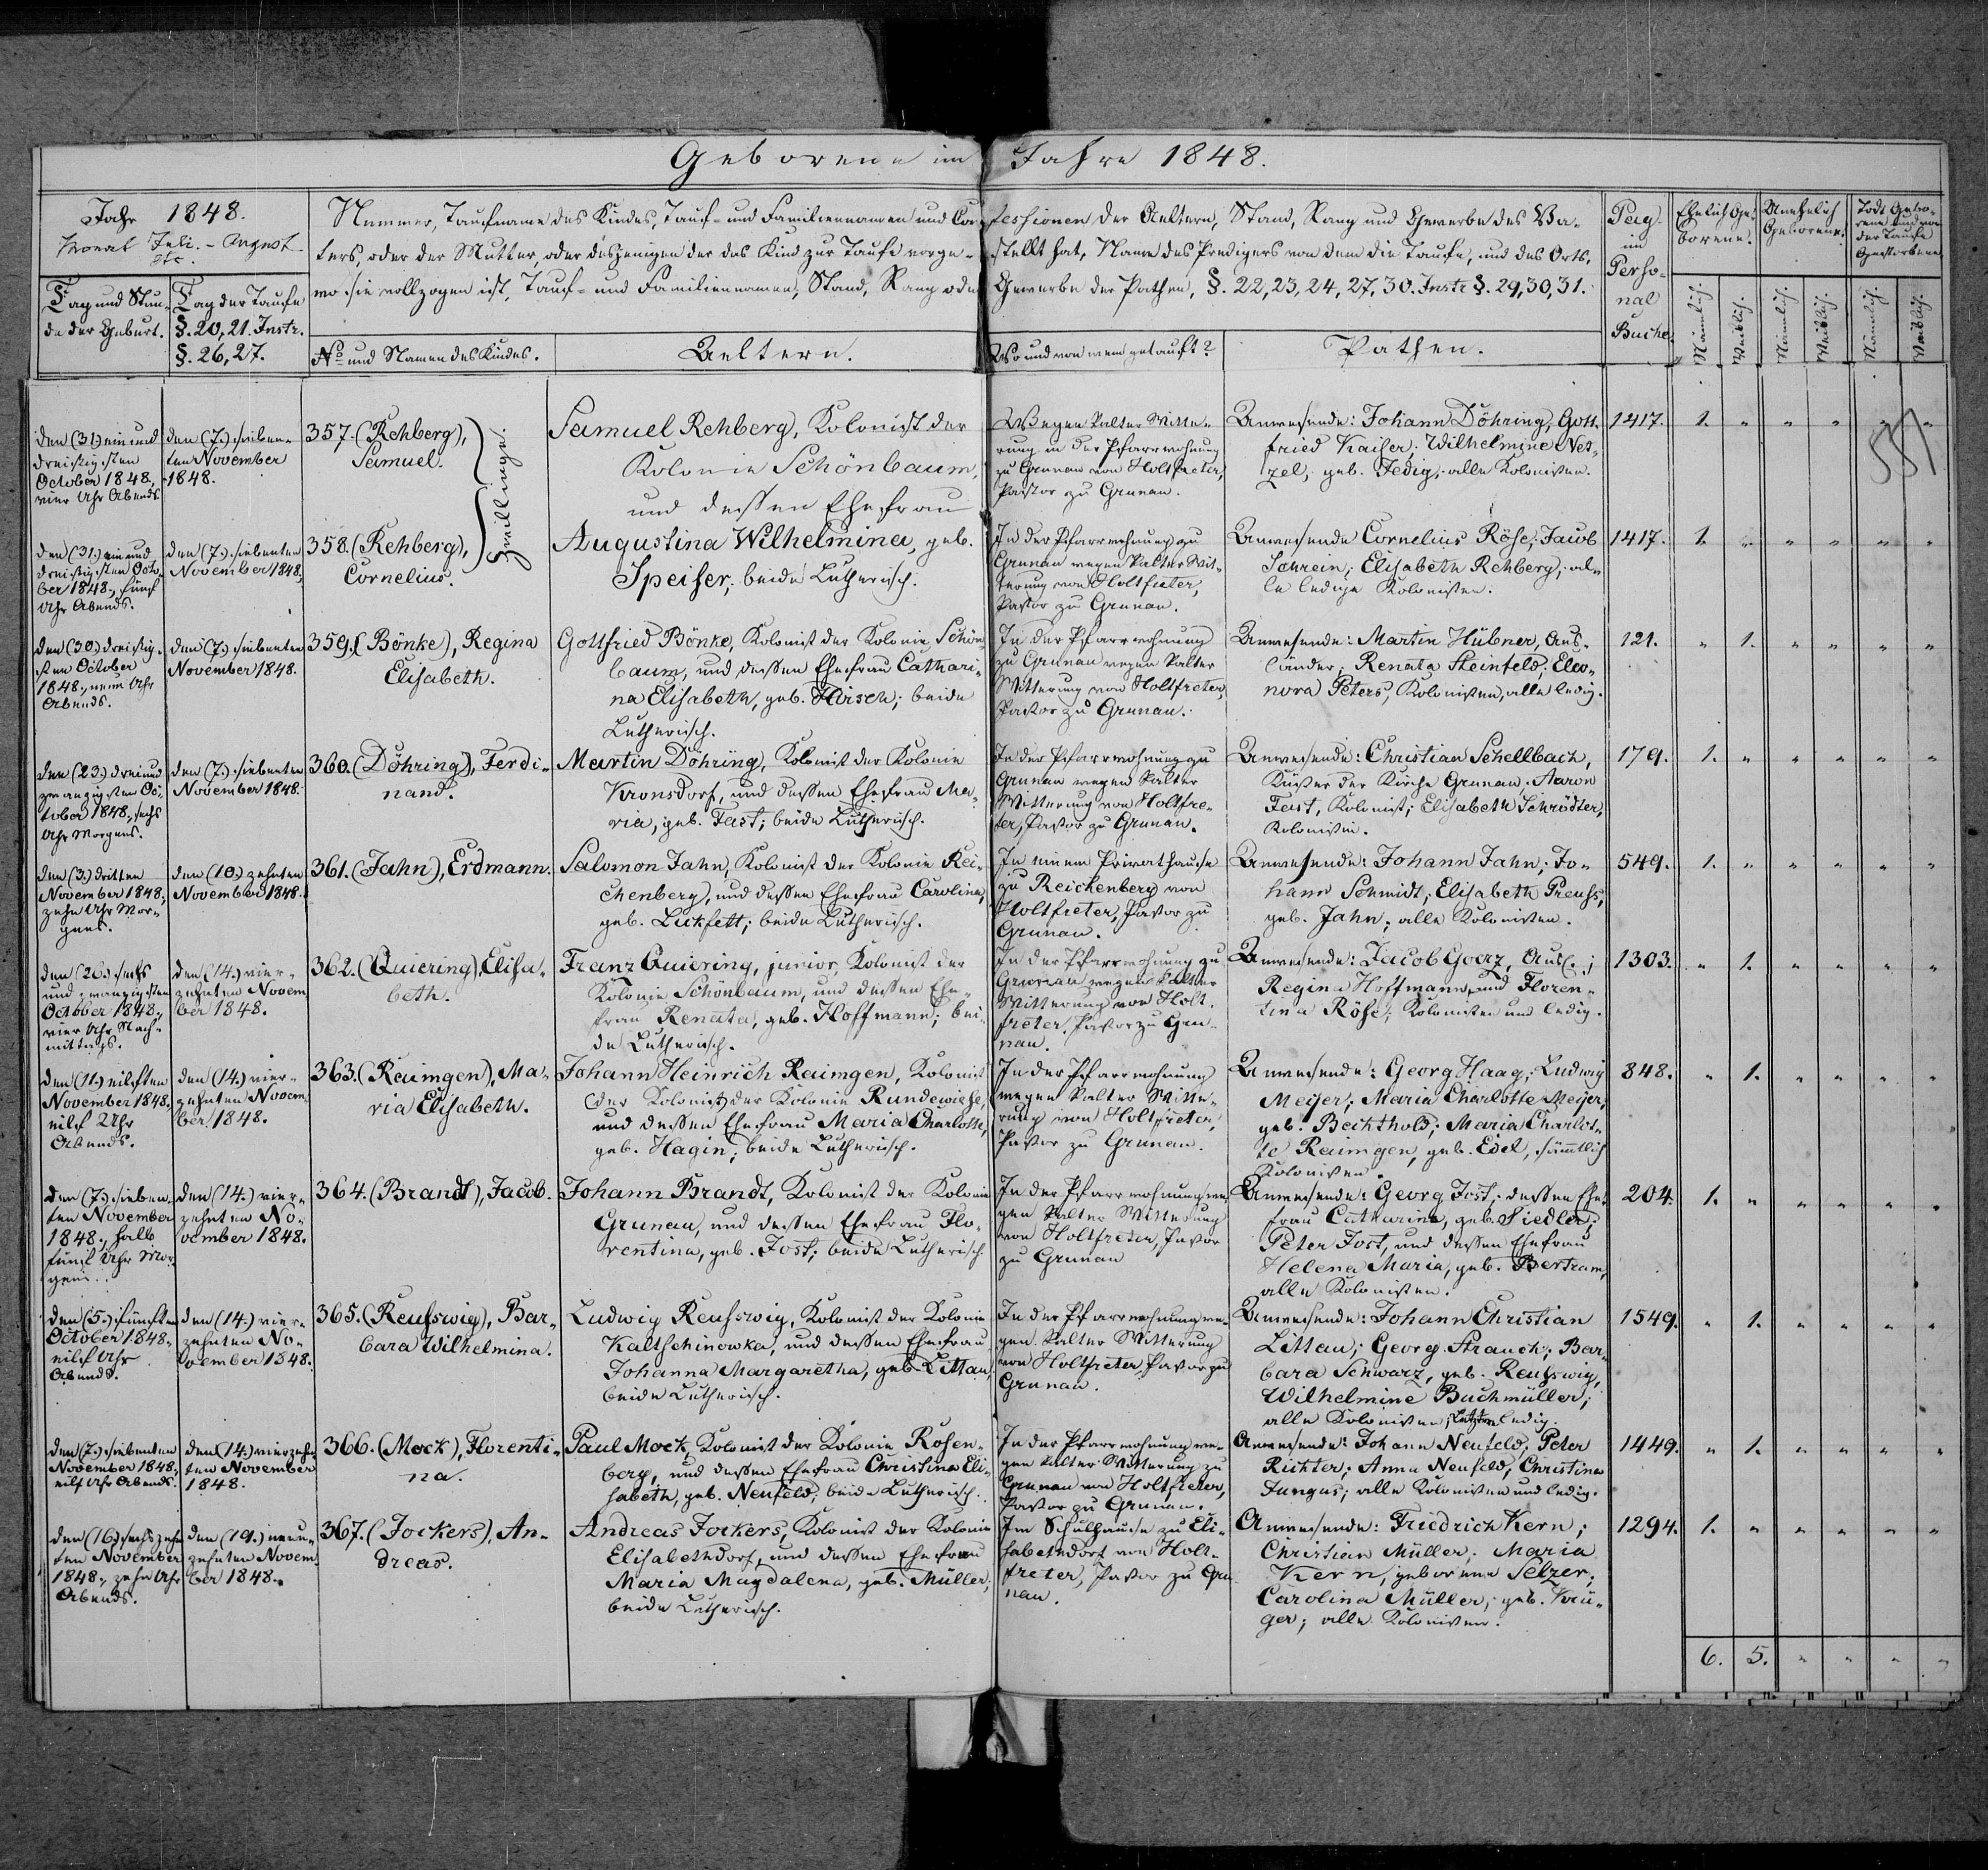 Geborene im Jahre 1848.
Jahr 1848.
Monat Juli. - August
etc.
Tag und Stun-
de der Geburt.
Tag der Taufe
§. 20, 21. Instr.
§. 26, 27.
Nummer, Taufname des Kindes, Tauf- und Familiennamen und Confessionen der Aeltern, Stand, Rang und Gewerbe des Va-
ters, oder der Mutter, oder desjenigen der das Kind zur Taufe vorge-stellt hat, Name des Predigers von dem die Taufe, und des Orts,
wo sie vollzogen ist, Tauf- und Familiennamen, Stand, Rang oder Gewerbe der Pathen, §. 22, 23, 24, 27, 30. Instr §. 29, 30, 31.
No und Namen des Kindes.
Aeltern.
Wo und von wem getauft?
Pathen.
Pag.
im
Perso-
nal
Buche.
Ehelich Ge-
borene.
Unehelich
Geborene.
Todt Gebo-
rene und vor
der Taufe
Gestorbene
Männlich.
Weiblich.
Männlich.
Weiblich.
Männlich.
Weiblich.
den (31.) ein und
dreißigsten
October 1848.,
vier Uhr Abends.
den (7.) sieben-
ten November
1848.
357. (Rehberg),
Samuel.
Zwillinge.
Samuel Rehberg, Kolonist der
Kolonie Schönbaum,
und dessen Ehefrau
Wegen kalter Witte-
rung in der Pfarrwohnung
zu Grunau von Holtfreter,
Pastor zu Grunau.
Anwesende: Johann Döhring, Gott-
fried Kaiser; Wilhelmine Net-
zel, geb. Fedig; alle Kolonisten.
1417. 1. " " " " "
den (31.) ein und
dreißigsten Octo-
ber 1848., fünf
Uhr Abends.
den (7.) siebenten
November 1848.
358. (Rehberg),
Cornelius.
Augustina Wilhelmina, geb.
Speiser; beide Lutherisch.
In der Pfarrwohnung zu
Grunau wegen kalter Wit-
terung von Holtfreter,
Pastor zu Grunau.
Anwesende Cornelius Röse; Jacob
Schrein; Elisabeth Rehberg; al-
le ledige Kolonisten.
1417. 1. " " " " "
den (30.) dreißig-
sten October
1848., neun Uhr
Abends.
den (7.) siebenten
November 1848.
359. (Bönke), Regina
Elisabeth.
Gottfried Bönke, Kolonist der Kolonie Schön-
baum, und dessen Ehefrau Cathari-
na Elisabeth, geb. Hirsch; beide
Lutherisch.
In der Pfarrwohnung
zu Grunau wegen kalter
Witterung von Holtfreter,
Pastor zu Grunau.
Anwesende: Martin Hübner, Aus-
länder; Renata Steinfeld; Eleo-
nora Peters, Kolonisten, alle ledig.
121. " 1. " " " "
den (23.) drei und
zwanzigsten Oc-
tober 1848., sechs
Uhr Morgens.
den (7.) siebenten
November 1848.
360. (Döhring), Ferdi-
nand.
Martin Döhring, Kolonist der Kolonie
Kronsdorf, und dessen Ehefrau Ma-
ria, geb. Fast; beide Lutherisch.
In der Pfarrwohnung zu
Grunau wegen kalter
Witterung von Holtfre-
ter, Pastor zu Grunau.
Anwesende: Christian Schellbach,
Küster der Kirche Grunau. Aaron
Fast, Kolonist; Elisabeth Schrödter,
Kolonistin.
179. 1. " " " " "
den (3.) dritten
November 1848.,
zehn Uhr Mor-
gens.
den (10.) zehnten
November 1848.
361. (Jahn), Erdmann.
Salomon Jahn, Kolonist der Kolonie Rei-
chenberg), und dessen Ehefrau Carolina,
geb. Lickfett; beide Lutherisch.
In einem Privathause
zu Reichenberg von
Holtfreter, Pastor zu
Grunau.
Anwesende: Johann Jahn; Jo-
hann Schmidt; Elisabeth Preuss,
geb. Jahn; alle Kolonisten.
549. 1. " " " " "
den (26.) sechs
und zwanzigsten
October 1848.,
vier Uhr Nach-
mittags.
den (14.) vier-
zehnten Novem
ber 1848.
362. (Quiering), Elisa-
beth.
Franz Quiering, junior, Kolonist der
Kolonie Schönbaum, und dessen Ehe-
frau Renata, geb. Hoffmann; bei-
de Lutherisch.
In der Pfarrwohnung zu
Grunau wegen kalter
Witterung von Holt-
freter, Pastor zu Gru-
nau.
Anwesende: Jacob Goerz,
Regina Hoffmann, und Floren-
tina Röse; Kolonisten und ledig.
1303. " 1. " " " "
den (11.) eilften
November 1848.
eilf Uhr
Abends.
den (14.) vier-
zehnten Novem-
ber 1848.
363. (Reimgen), Ma-
ria Elisabeth.
Johann Heinrich Reimgen, Kolonist
(der Kolonist) der Kolonie Rundewiese,
und dessen Ehefrau Maria Charlotte,
geb. Hagin; beide Lutherisch.
In der Pfarrwohnung
wegen kalter Witte-
rung von Holtfreter,
Pastor zu Grunau.
Anwesende: Georg Haag; Ludwig
Meyer; Maria Charlotte Meyer,
geb. Beichthold; Maria Charlot-
te Reimgen, geb. Edel, sämmtlich
Kolonisten.
848. " 1. " " " "
den (7.) sieben-
ten November
1848., halb
fünf Uhr Mor-
gens.
den (14.) vier-
zehnten No-
vember 1848.
364. (Brandt), Jacob.
Johann Brandt, Kolonist der Kolonie
Grunau, und dessen Ehefrau Flo-
rentina, geb. Jost; beide Lutherisch
In der Pfarrwohnung we-
gen kalter Witterung
von Holtfreter, Pastor
zu Grunau
Anwesende: Georg Jost; dessen Ehe-
frau Catharina, geb. Siedler;
Peter Jost, und dessen Ehefrau
Helena Maria, geb. Bertram,
alle Kolonisten.
204. 1. " " " " "
den (5.) fünften
October 1848.,
eilf Uhr
Abends.
den (14.) vier-
zehnten No-
vember 1848.
365. (Reusswig), Bar-
bara Wilhelmina.
Ludwig Reusswig, Kolonist der Kolonie
Kaltschinowka, und dessen Ehefrau
Johanna Margaretha, geb. Littau,
beide Lutherisch.
In der Pfarrwohnung we-
gen kalter Witterung
von Holtfreter, Pastor zu
Grunau.
Anwesende: Johann Christian
Littau; Georg Strauch; Bar-
bara Schwarz, geb. Reusswig,
Wilhelmine Buchmüller;
alle Kolonisten; Letztere ledig.
1549. " 1. " " " "
den (7.) siebenten
November 1848.,
eilf Uhr Abends.
den (14.) vierzehn-
ten November
1848.
366. (Mock), Florenti-
na.
Paul Mock, Kolonist der Kolonie Rosen-
berg, und dessen Ehefrau Christina Eli-
sabeth, geb. Neufeld; beide Lutherisch.
In der Pfarrwohnung we-
gen kalter Witterung zu
Grunau von Holtfreter,
Pastor zu Grunau.
Anwesende: Johann Neufeld; Peter
Richter; Anna Neufeld; Christina
Jungus; alle Kolonisten und ledig.
1449. " 1. " " " "
den (16.) sechszehn
ten November
1848., zehn Uhr
Abends.
den (19.) neun-
zehnten Novem
ber 1848.
367. (Jockers), An-
dreas.
Andreas Jockers, Kolonist der Kolonie
Elisabethdorf, und dessen Ehefrau
Maria Magdalena, geb. Müller;
beide Lutherisch.
Im Schulhause zu Eli-
sabethdorf von Holt-
freter, Pastor zu Gru-
nau.
Anwesende: Friedrich Kern;
Christian Müller; Maria
Kern, geborene Selzer;
Carolina Müller, geb. Krü-
ger; alle Kolonisten.
1294. 1. " " " " "
6. 5. " " " "